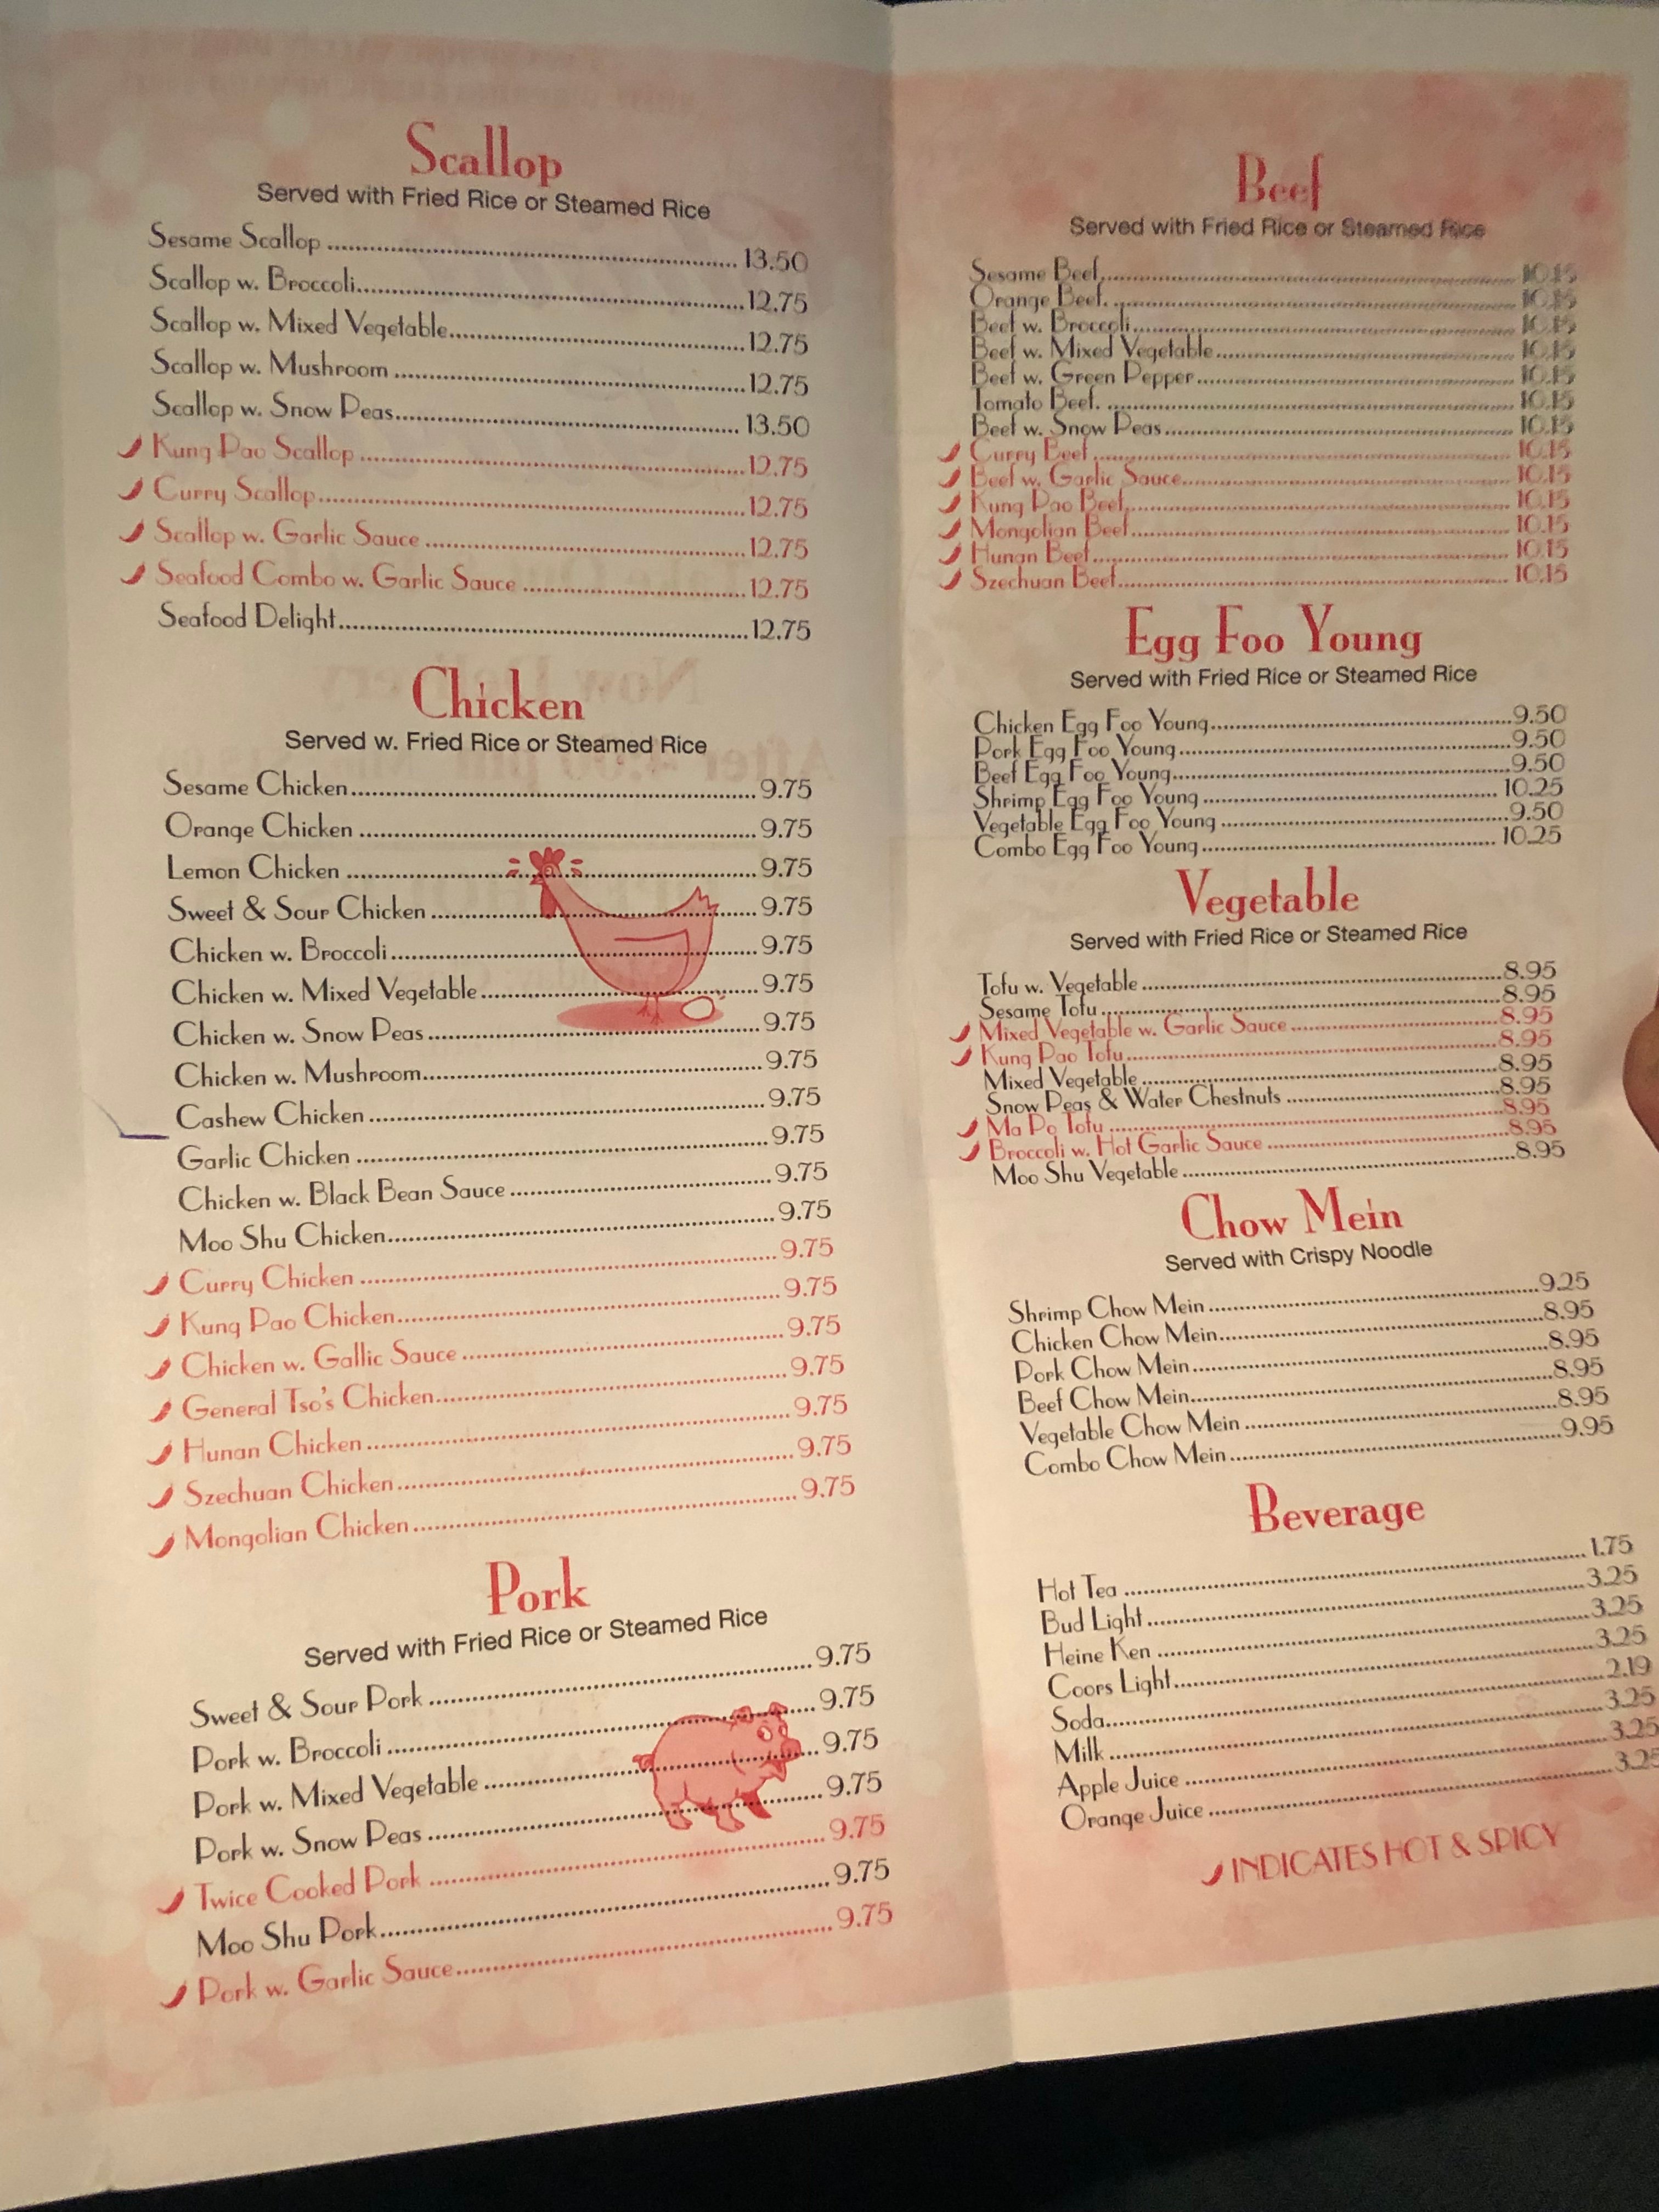 Scallop
Served with Fried Rice or Steamed Rice
Sesame Scallop ........ 13.50
Scallop w. Broccoli ........ 12.75
Scallop w. Mixed Vegetable ........ 12.75
Scallop w. Mushroom ........ 12.75
Scallop w. Snow Peas ........ 13.50
Kung Pao Scallop ........ 12.75
Curry Scallop ........ 12.75
Scallop w. Garlic Sauce ........ 12.75
Seafood Combo w. Garlic Sauce ........ 12.75
Seafood Delight ........ 12.75
Chicken
Served w. Fried Rice or Steamed Rice
Sesame Chicken ........ 9.75
Orange Chicken ........ 9.75
Lemon Chicken ........ 9.75
Sweet & Sour Chicken ........ 9.75
Chicken w. Broccoli ........ 9.75
Chicken w. Mixed Vegetable ........ 9.75
Chicken w. Snow Peas ........ 9.75
Chicken w. Mushroom ........ 9.75
Cashew Chicken ........ 9.75
Garlic Chicken ........ 9.75
Chicken w. Black Bean Sauce ........ 9.75
Moo Shu Chicken ........ 9.75
Curry Chicken ........ 9.75
Kung Pao Chicken ........ 9.75
Chicken w. Gallic Sauce ........ 9.75
General Tso's Chicken ........ 9.75
Hunan Chicken ........ 9.75
Szechuan Chicken ........ 9.75
Mongolian Chicken ........ 9.75
Pork
Served with Fried Rice or Steamed Rice
Sweet & Sour Pork ........ 9.75
Pork w. Broccoli ........ 9.75
Pork w. Mixed Vegetable ........ 9.75
Pork w. Snow Peas ........ 9.75
Twice Cooked Pork ........ 9.75
Moo Shu Pork ........ 9.75
Pork w. Garlic Sauce ........ 9.75
Beef
Served with Fried Rice or Steamed Rice
Sesame Beef ........ 10.15
Orange Beef. ........ 10.15
Beef w. Broccoli ........ 10.15
Beef w. Mixed Vegetable ........ 10.15
Beef w. Green Pepper ........ 10.15
Tomato Beef. ........ 10.15
Beef w. Snow Peas ........ 10.15
Curry Beef ........ 10.15
Beef w. Garlic Sauce ........ 10.15
Kung Pao Beef ........ 10.15
Mongolian Beef ........ 10.15
Hunan Beef ........ 10.15
Szechuan Beef ........ 10.15
Egg Foo Young
Served with Fried Rice or Steamed Rice
Chicken Egg Foo Young ........ 9.50
Pork Egg Foo Young ........ 9.50
Beef Egg Foo Young ........ 9.50
Shrimp Egg Foo Young ........ 10.25
Vegetable Egg Foo Young ........ 9.50
Combo Egg Foo Young ........ 10.25
Vegetable
Served with Fried Rice or Steamed Rice
Tofu w. Vegetable ........ 8.95
Sesame Tofu ........ 8.95
Mixed Vegetable w. Garlic Sauce ........ 8.95
Kung Pao Tofu ........ 8.95
Mixed Vegetable ........ 8.95
Snow Peas & Water Chestnuts ........ 8.95
Ma Po Tofu ........ 8.95
Broccoli w. Hot Garlic Sauce ........ 8.95
Moo Shu Vegetable ........ 8.95
Chow Mein
Served with Crispy Noodle
Shrimp Chow Mein ........ 9.25
Chicken Chow Mein ........ 8.95
Pork Chow Mein ........ 8.95
Beef Chow Mein ........ 8.95
Vegetable Chow Mein ........ 8.95
Combo Chow Mein ........ 9.95
Beverage
Hot Tea ........ 1.75
Bud Light ........ 3.25
Heine Ken ........ 3.25
Coors Light ........ 3.25
Soda ........ 2.19
Milk ........ 3.25
Apple Juice ........ 3.25
Orange Juice ........ 3.25
INDICATES HOT & SPICY